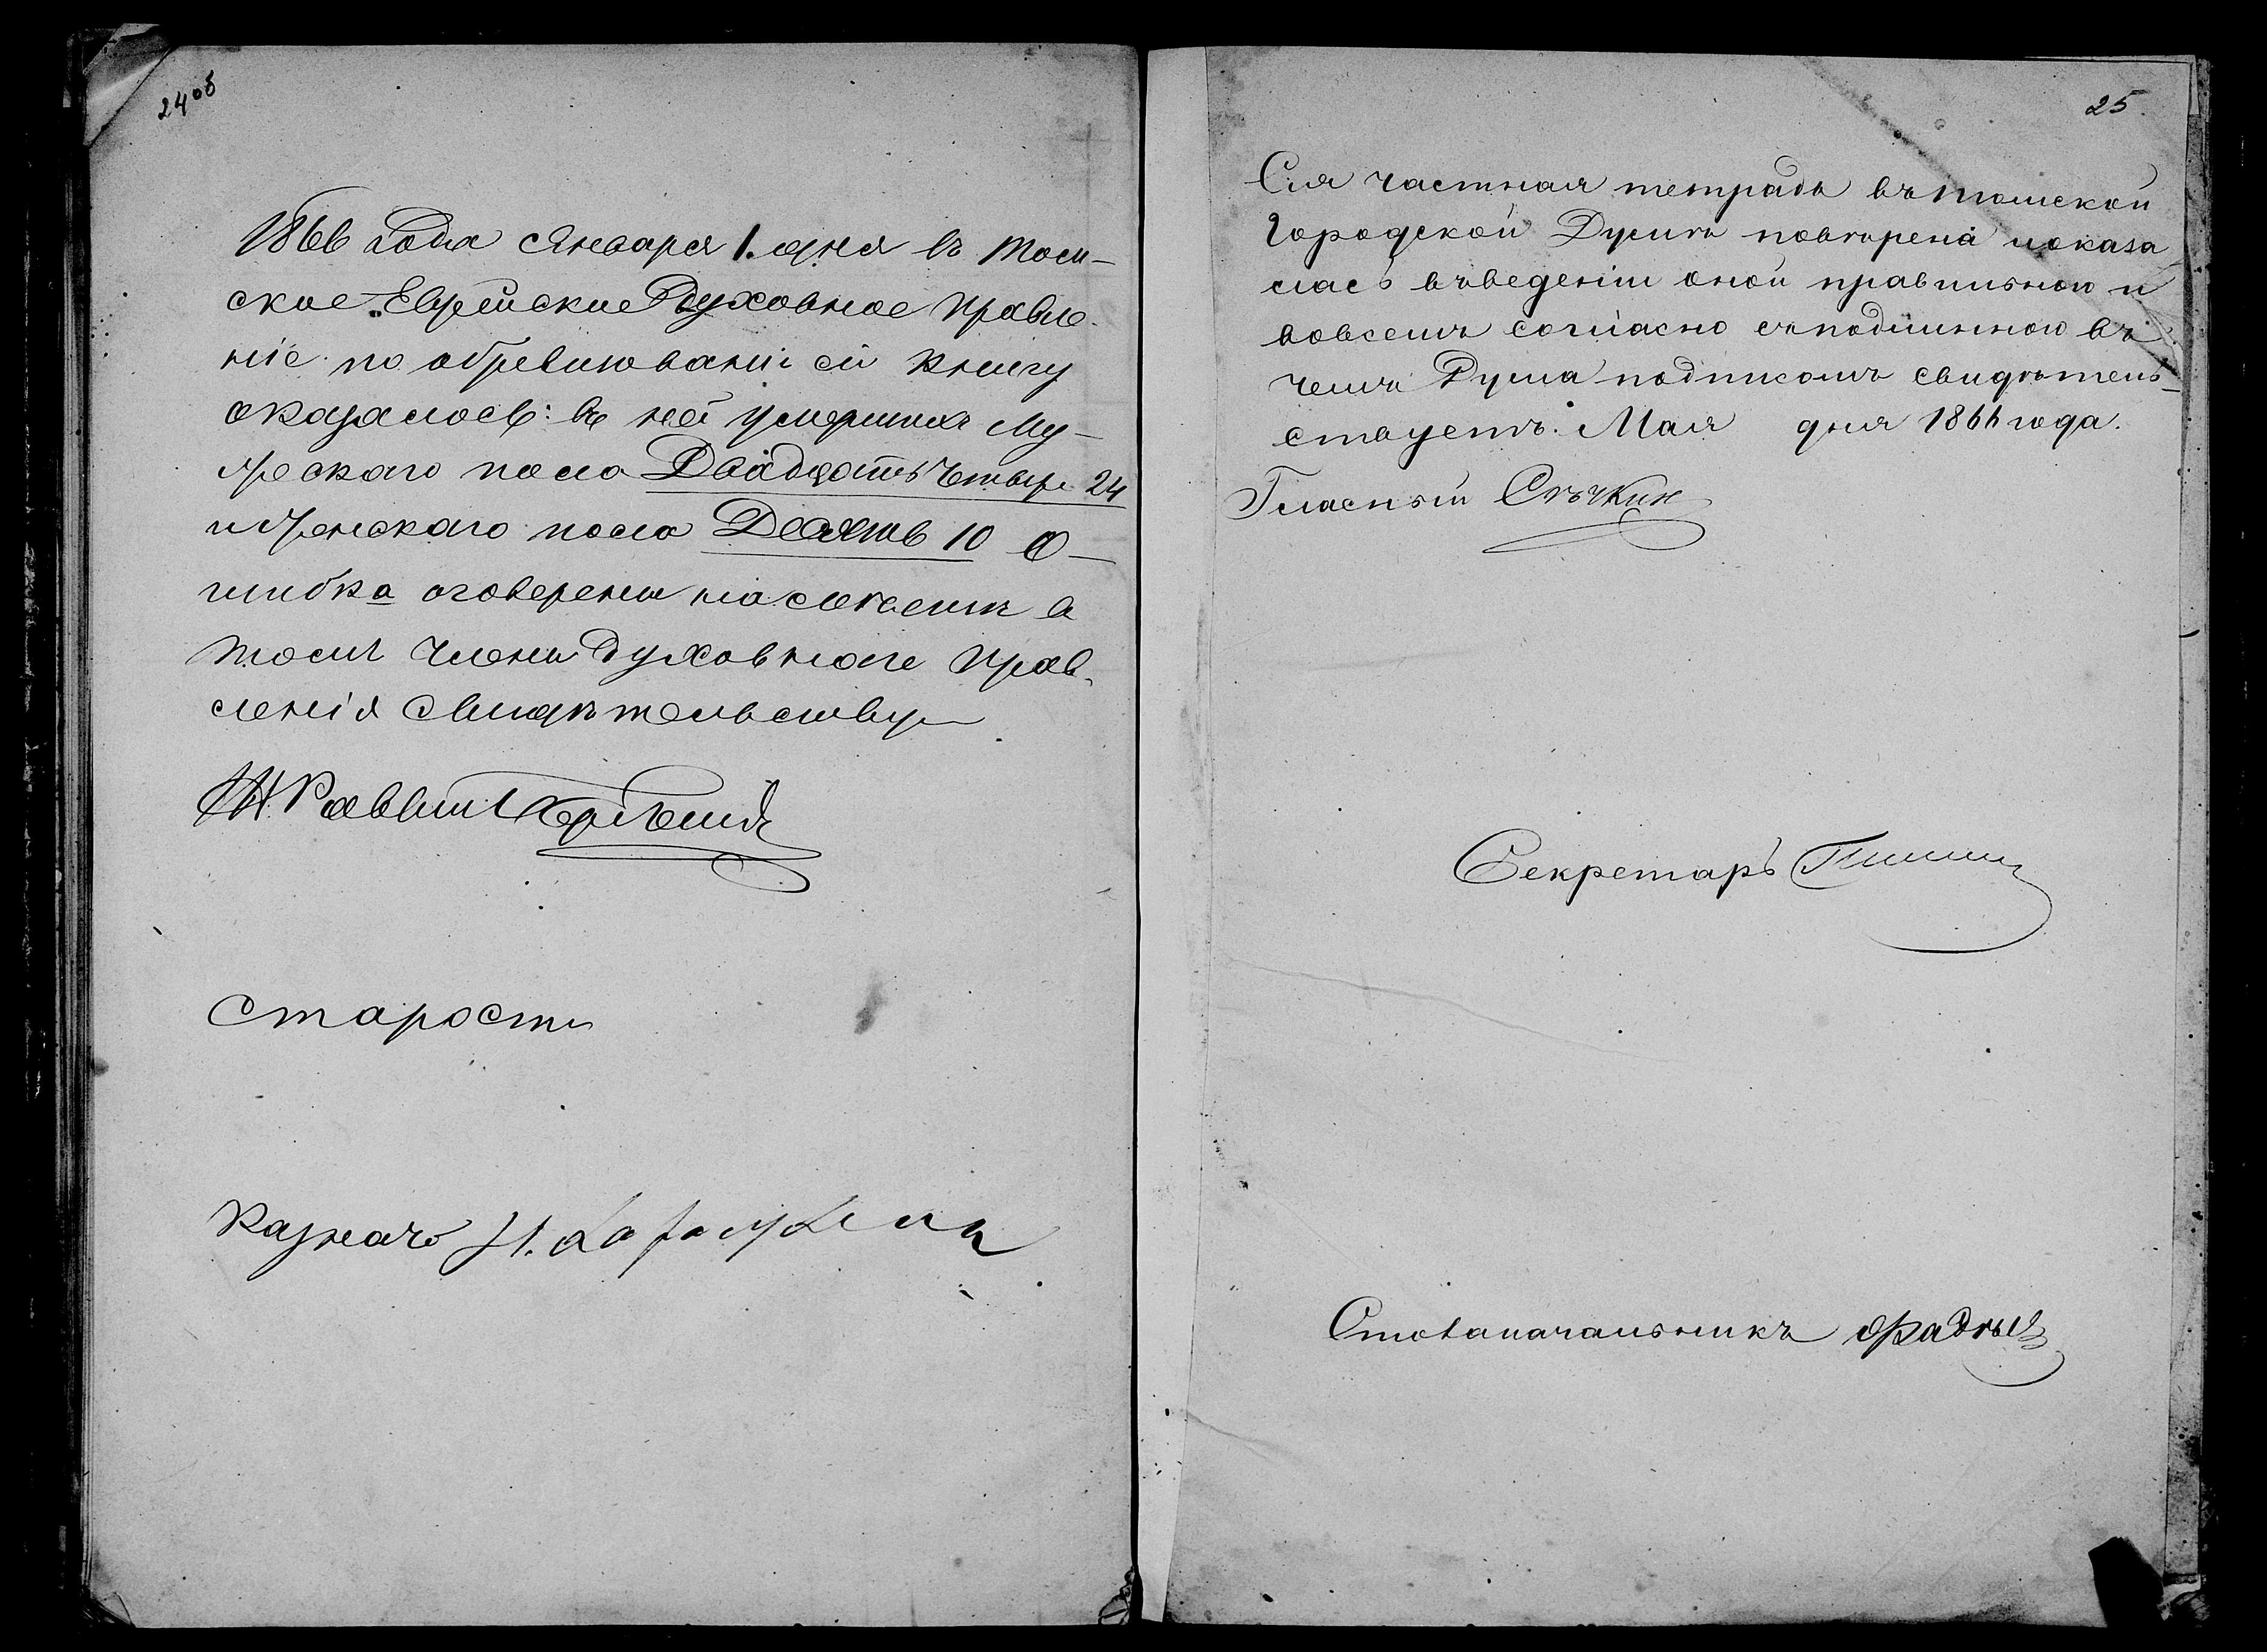 24 об
1866 Года Января 1. дня въ Том-
ское Еврейское Духовное Правле-
ніе по обревизованіи сей Книгу
оказалось: въ ней умершихъ Му-
жескаго пола Двадцать Четыре 24
и Женскаго пола Десять 10 О-
шибка оговерены на
томъ Члены Духовнаго Прав-
ленія Свидѣтельствуе
Раввин
Старости
Казначъ
25.
Сія частная тетрадь въ томской
Городской Думѣ повѣрена иоказа
лась въ веденіи оной правильною и
вовсемъ согласно съ подлинною въ
чемъ Дума подписомъ свидѣтель-
ствуетъ. Мая дня 1866 года.
Гласный Сѣчкин
Секретарь
Столаначальникъ